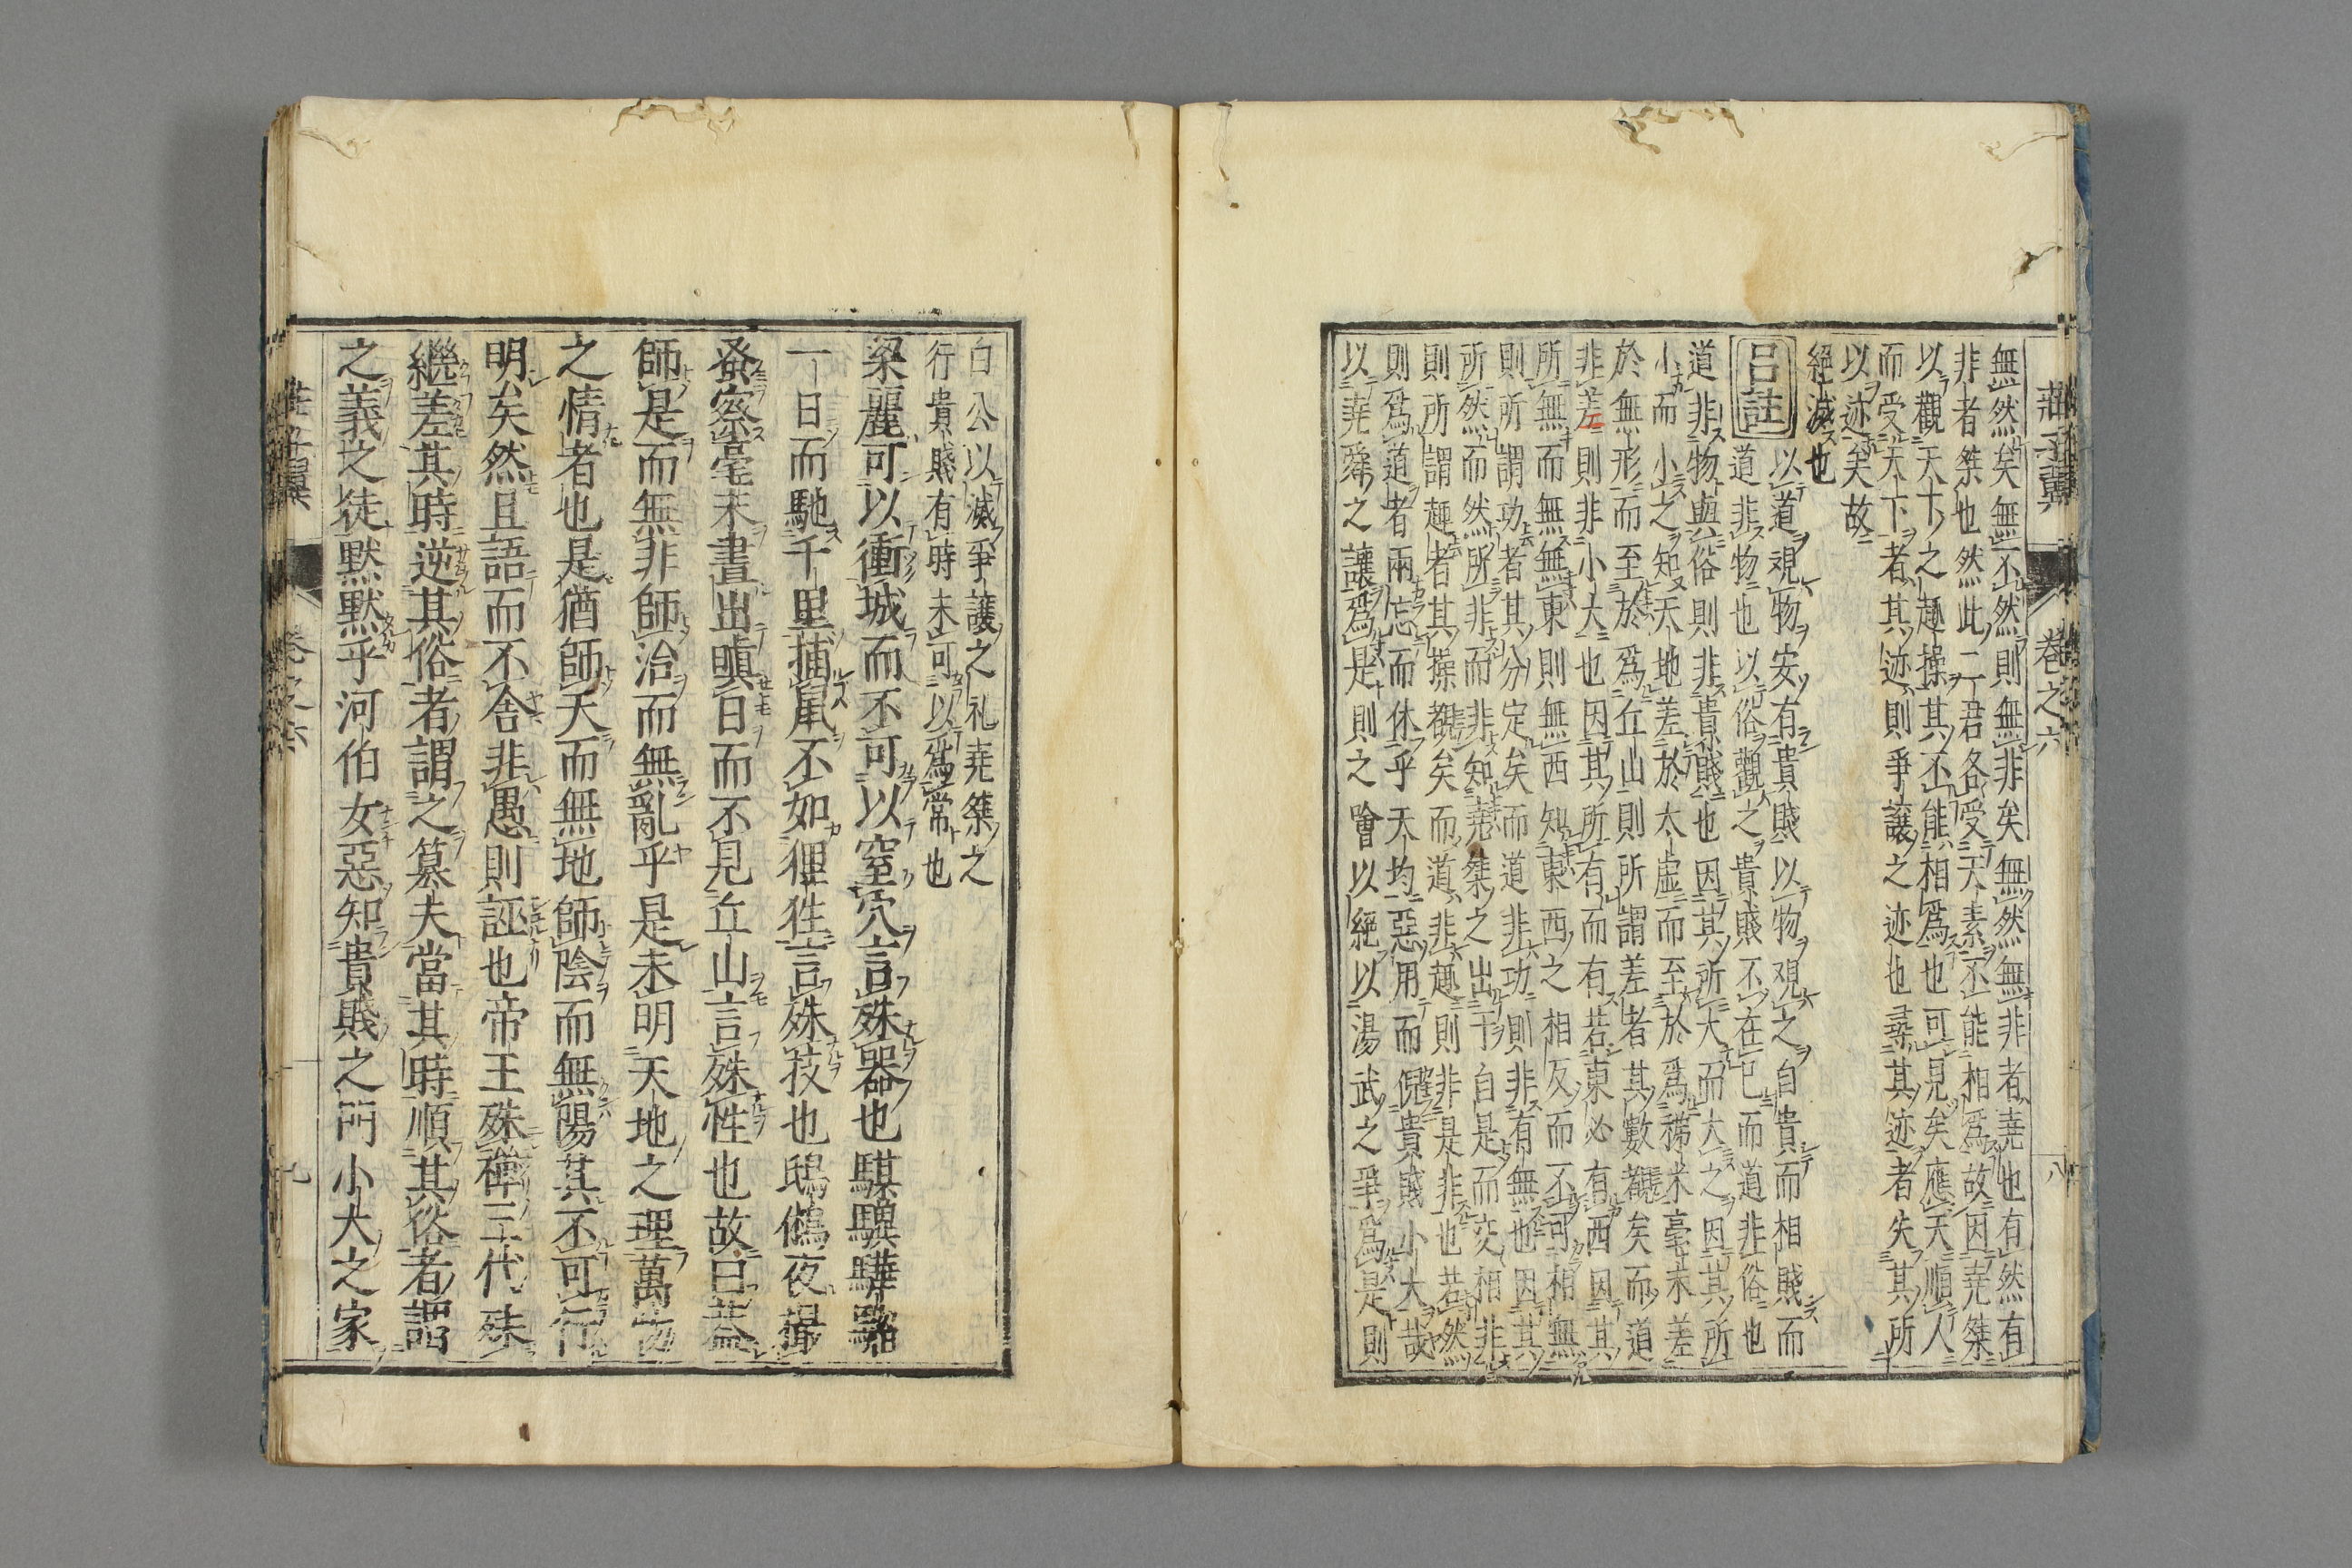 莊子翼 卷之六 八
無然矣無不然則無非矣無然無非者堯也有然有
非者桀也然此二君各受天素不能相爲故因堯桀
以觀天下之趣操其不能相爲也可見矣應天順人
而受天下者其迹則爭讓之迹也尋其迹者失其所
以迹矣故
絕滅也
呂註
以道観物安有貴賤以物観之自貴而相賤而
道非物也以俗觀之貴賤不在己而道非俗也
道非物與俗則非貴賤也因其所大而大之因其所
小而小之知天地差於太虛而至於爲稊米毫末差
於無形而至於爲丘山則所謂差者其數覩矣而道
非差則非小大也因其所有而有若東必有西因其
所無而無無東則無西知東西之相反而不可相無
則所謂功者其分定矣而道非功則非有無也因其
所然而然所非而非知堯桀之出于自是而交相非
則所謂趣者其操覩矣而道非趣則非是非也若然
則爲道者兩忘而休乎天均惡用而倪貴賤小大哉
以堯舜之讓爲是則之噲以絕以湯武之爭爲是則
白公以滅爭讓之礼堯桀之
行貴賤有時未可以爲常也
梁麗可以衝城而不可以窒穴言殊器也騏驥驊騮
一日而馳千里捕鼠不如狸狌言殊技也鴟鵂夜撮
蚤察毫末晝出瞋目而不見丘山言殊性也故曰蓋
師是而無非師治而無亂乎是未明天地之理萬物
之情者也是猶師天而無地師陰而無陽其不可行
明矣然且語而不舍非愚則誣也帝王殊禪三代殊
繼差其時逆其俗者謂之篡夫當其時順其俗者謂
之義之徒默默乎河伯女惡知貴賤之門小大之家
莊子翼 卷之六 九